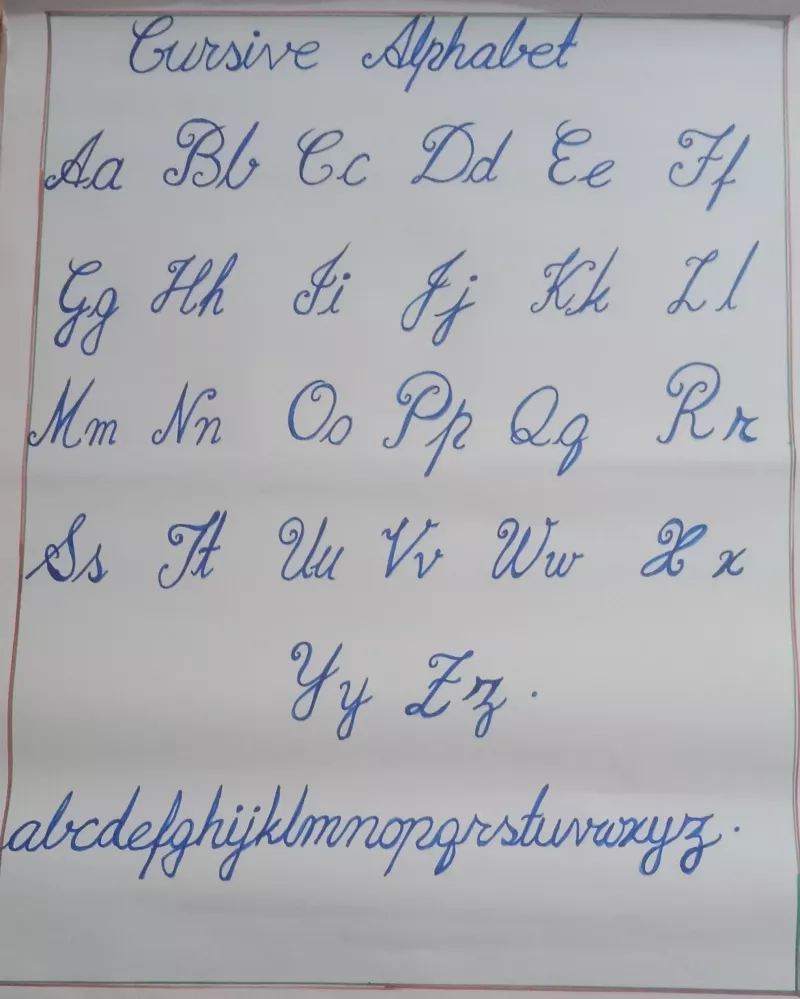 Cursive Alphabet
Aa Bb Cc Dd Ee Ff
Gg Hh Ii Jj Kk Ll
Mm Nn Oo Pp Qq Rr
Ss Tt Uu Vv Ww Xx
Yy Zz.
abcdefghijklmnopqrstuvwxyz.